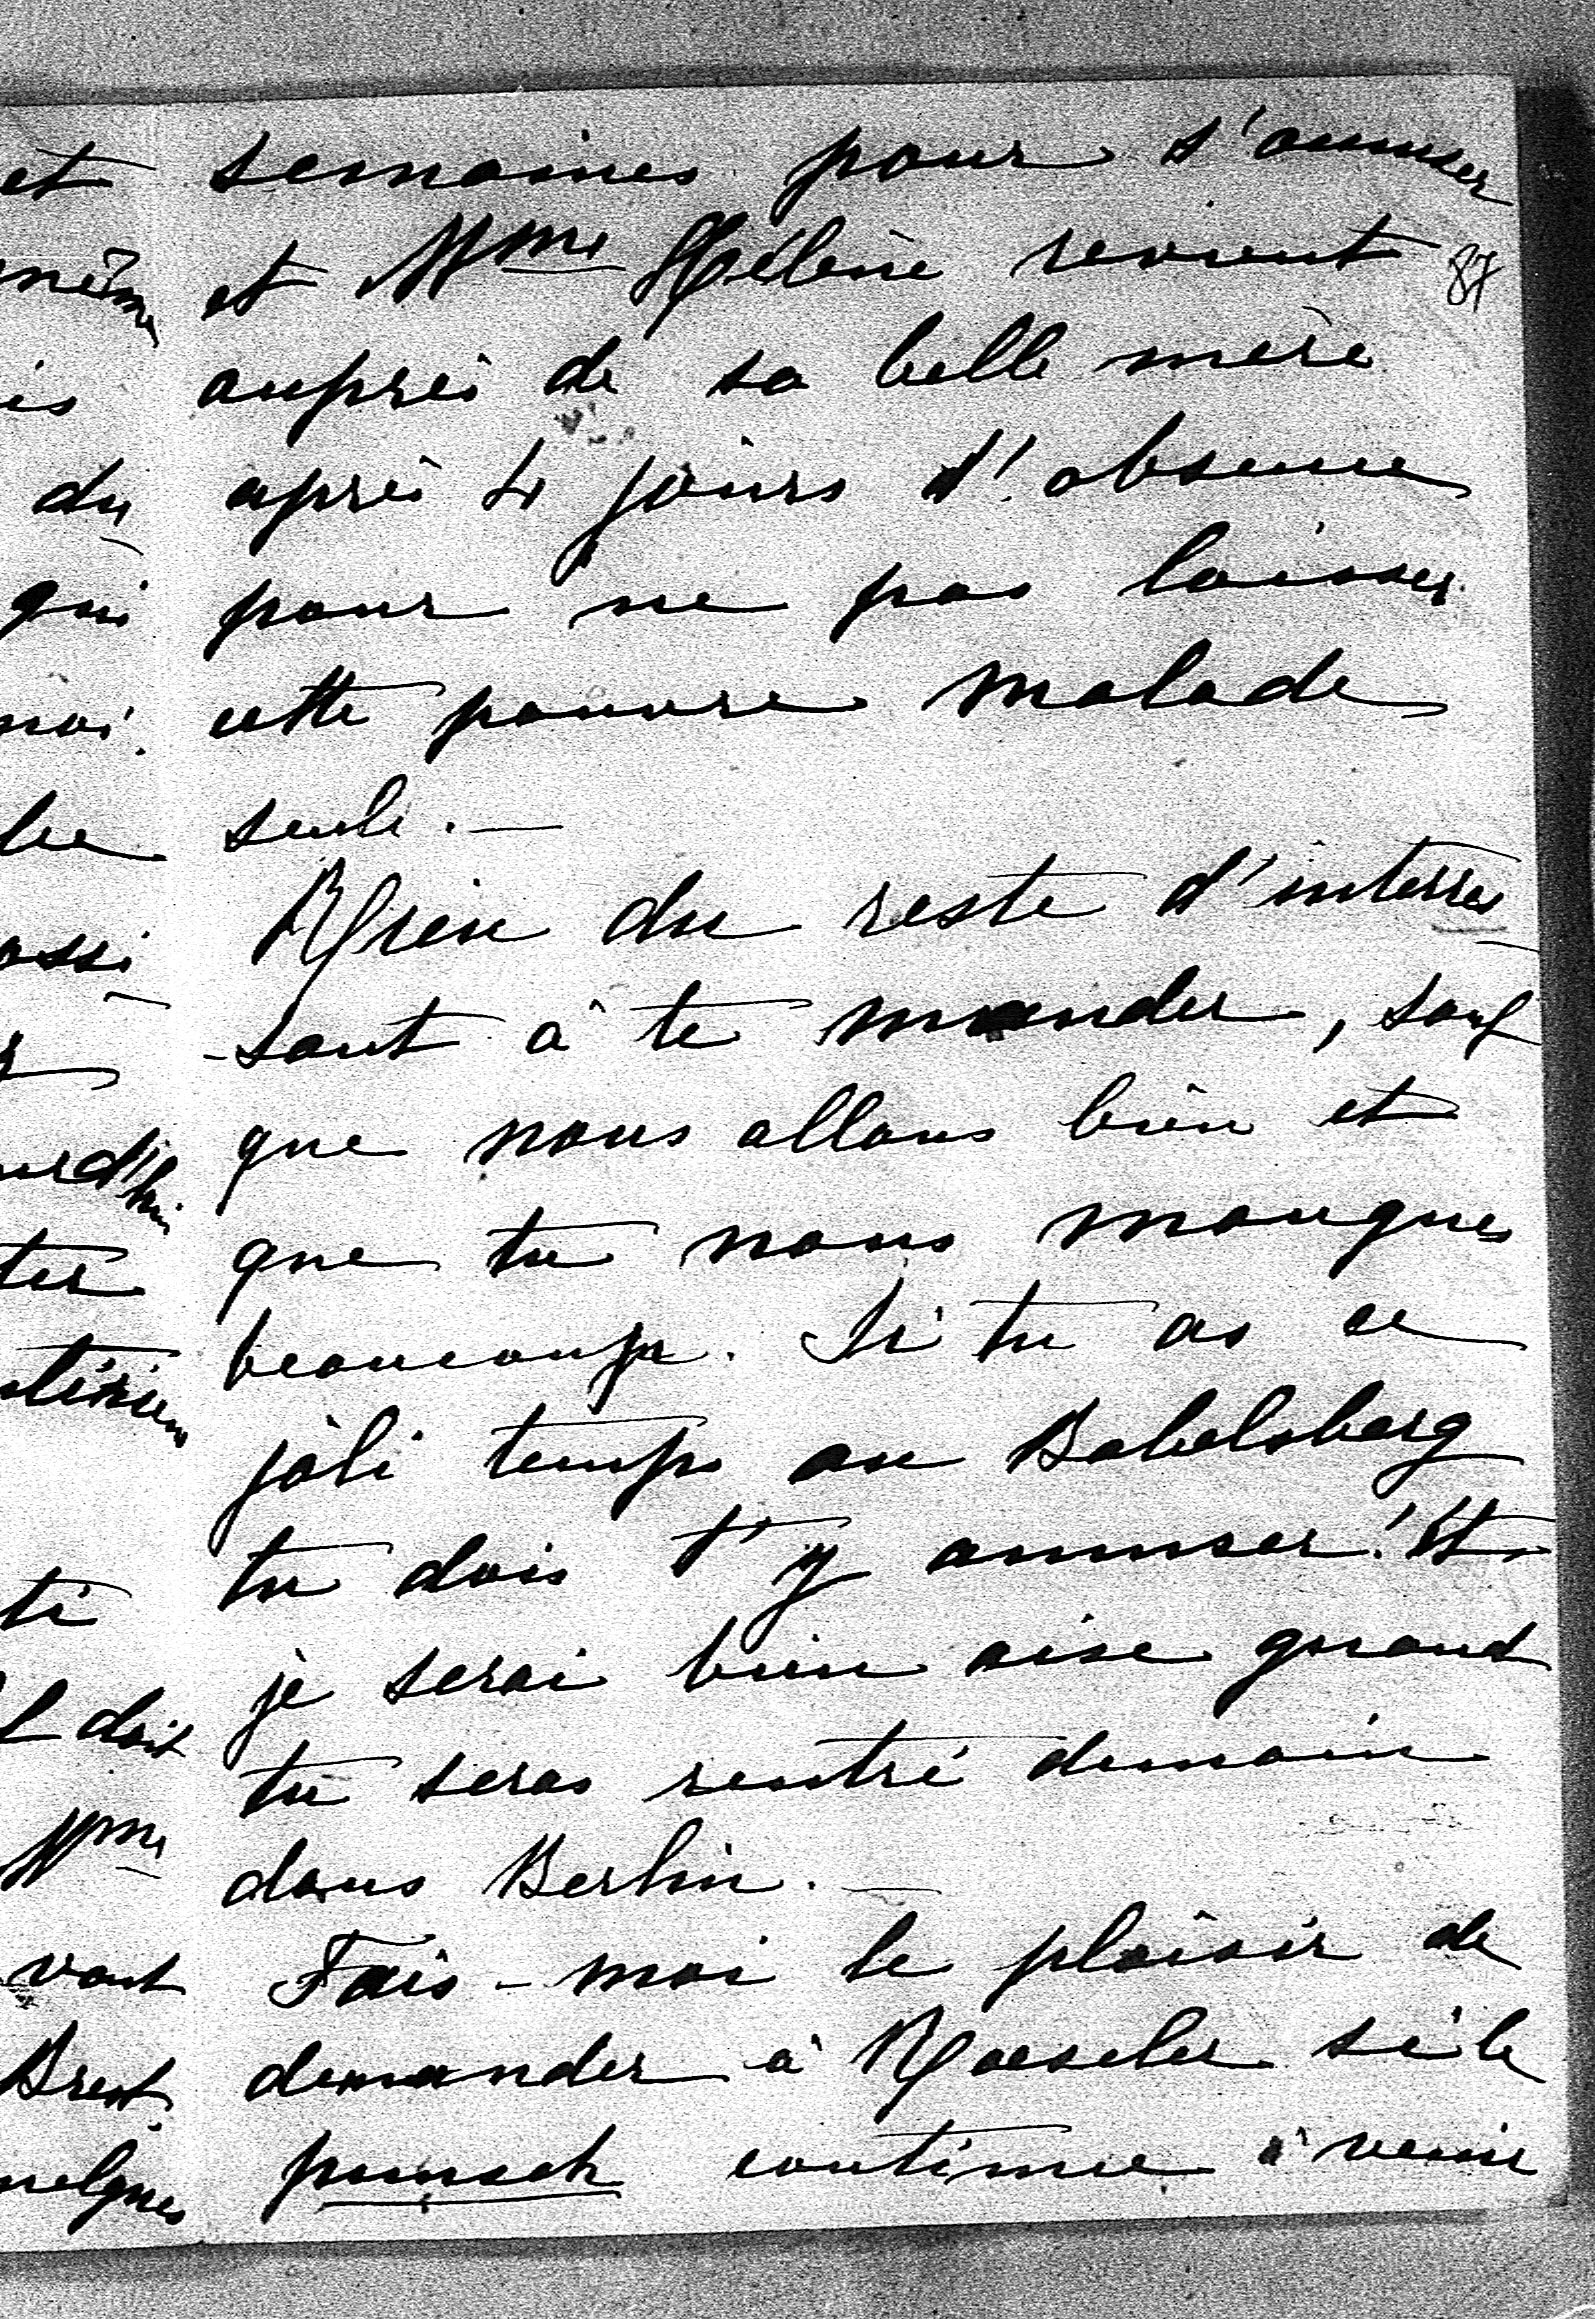 semaines pour s'amuser
et Mme Hélène revient
87
auprès de sa belle mère
après 4 jours d'absence
pour ne pas laisser
cette pauvre malade
seule. —
Rien du reste d'interres
-sant à te mander, sauf
que nous allons bien et
que tu nous manques
beaucoup. Si tu as ce
joli temps au Babelsberg
tu dois t'y amuser! Et
je serai bien aise quand
tu seras rentré demain
dans Berlin. —
Fais-moi le plaisir de
demander à Roeseler si le
punsch continue à venir
et
même
is
du
qui
moi.
assi
tes
ti
doit
Mme
vont
Brest.